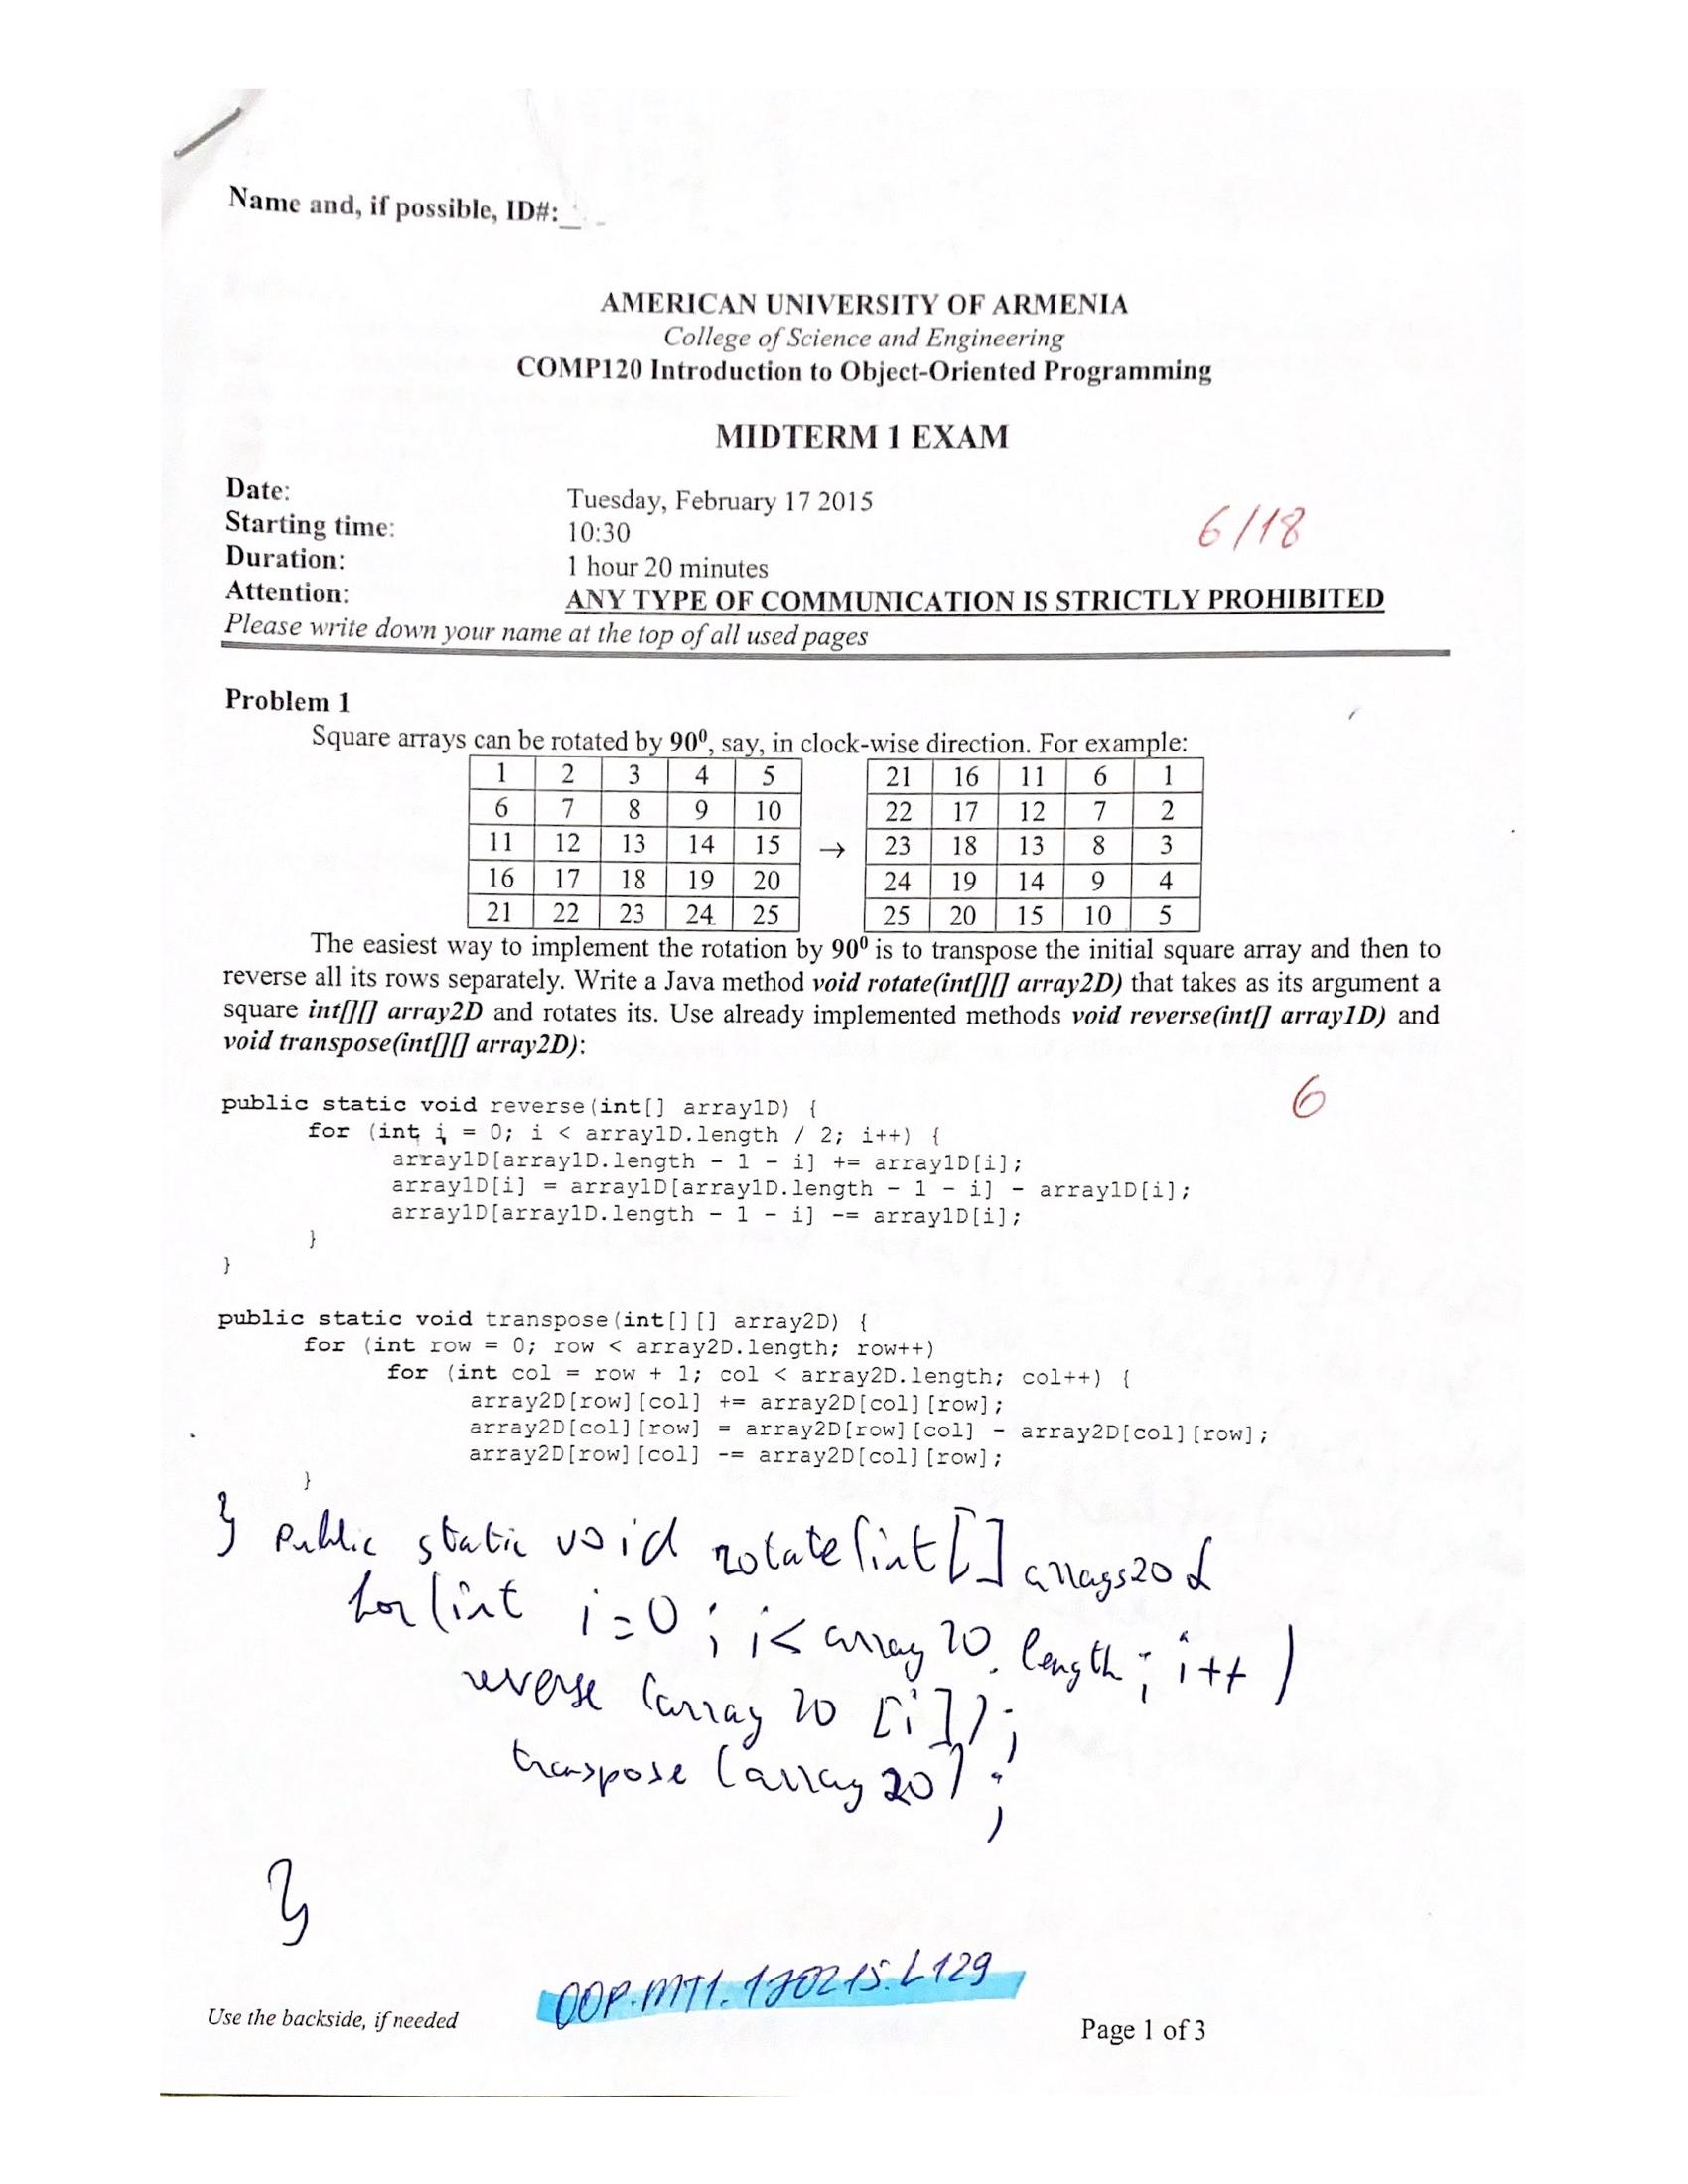 Name and, if possible, ID#:
AMERICAN UNIVERSITY OF ARMENIA
College of Science and Engineering
COMP120 Introduction to Object-Oriented Programming
MIDTERM 1 EXAM
Date: Tuesday, February 17 2015
Starting time: 10:30
6/18
Duration: 1 hour 20 minutes
Attention: ANY TYPE OF COMMUNICATION IS STRICTLY PROHIBITED
Please write down your name at the top of all used pages
Problem 1
Square arrays can be rotated by 90⁰, say, in clock-wise direction. For example:
1 2 3 4 5 21 16 11 6 1
6 7 8 9 10 22 17 12 7 2
11 12 13 14 15 → 23 18 13 8 3
16 17 18 19 20 24 19 14 9 4
21 22 23 24 25 25 20 15 10 5
The easiest way to implement the rotation by 90⁰ is to transpose the initial square array and then to
reverse all its rows separately. Write a Java method void rotate(int[][] array2D) that takes as its argument a
square int[][] array2D and rotates its. Use already implemented methods void reverse(int[] array1D) and
void transpose(int[][] array2D):
6
public static void reverse(int[] array1D) {
for (int i = 0; i < array1D.length / 2; i++) {
array1D[array1D.length - 1 - i] += array1D[i];
array1D[i] = array1D[array1D.length - 1 - i] - array1D[i];
array1D[array1D.length - 1 - i] -= array1D[i];
}
}
public static void transpose(int[][] array2D) {
for (int row = 0; row < array2D.length; row++)
for (int col = row + 1; col < array2D.length; col++) {
array2D[row][col] += array2D[col][row];
array2D[col][row] = array2D[row][col] - array2D[col][row];
array2D[row][col] -= array2D[col][row];
}
} public static void rotate(int[] arrays2D{
for(int i=0; i<array2D.length; i++)
reverse (array2D [i]);
transpose (array2D);
}
OOP.MT1.170215.L129
Use the backside, if needed
Page 1 of 3